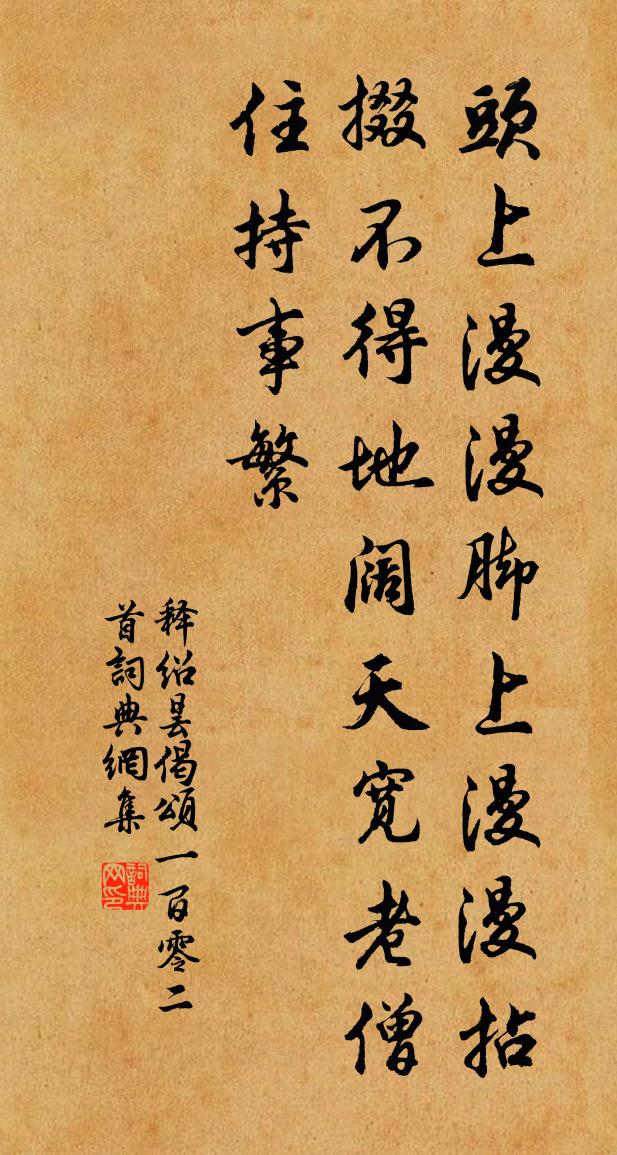 頭上漫漫脚上漫漫拈
掇不得地阔天宽老僧
住持事繁
释绍昙偈頌一百零二
首詞典網集
詞典
网印